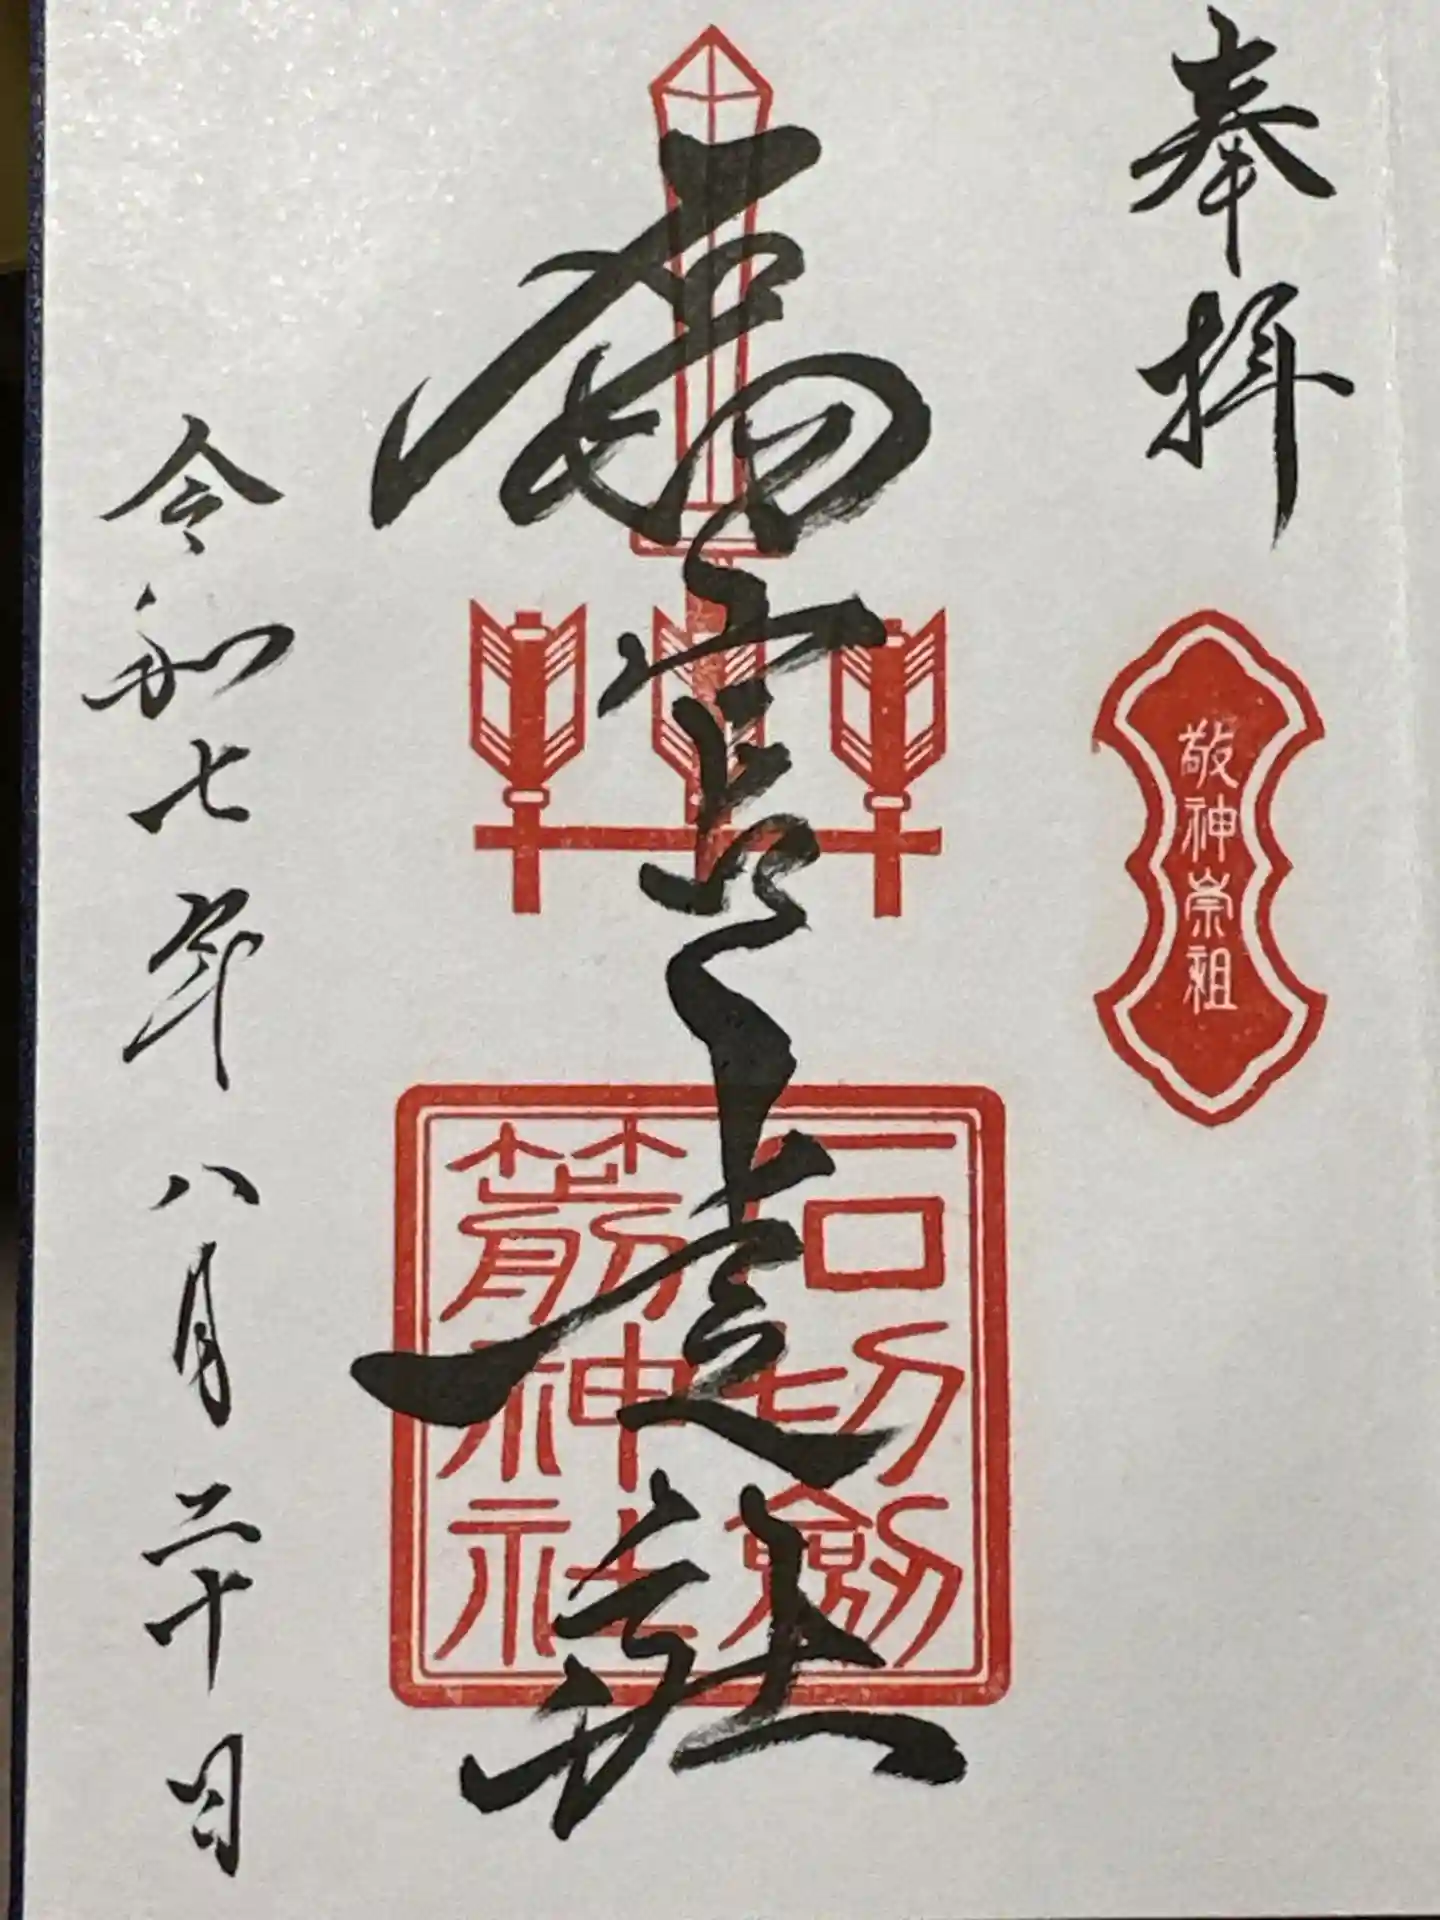 奉拝
敬神崇祖
宮上之社
石切劔
箭神社
令和七年八月二十日